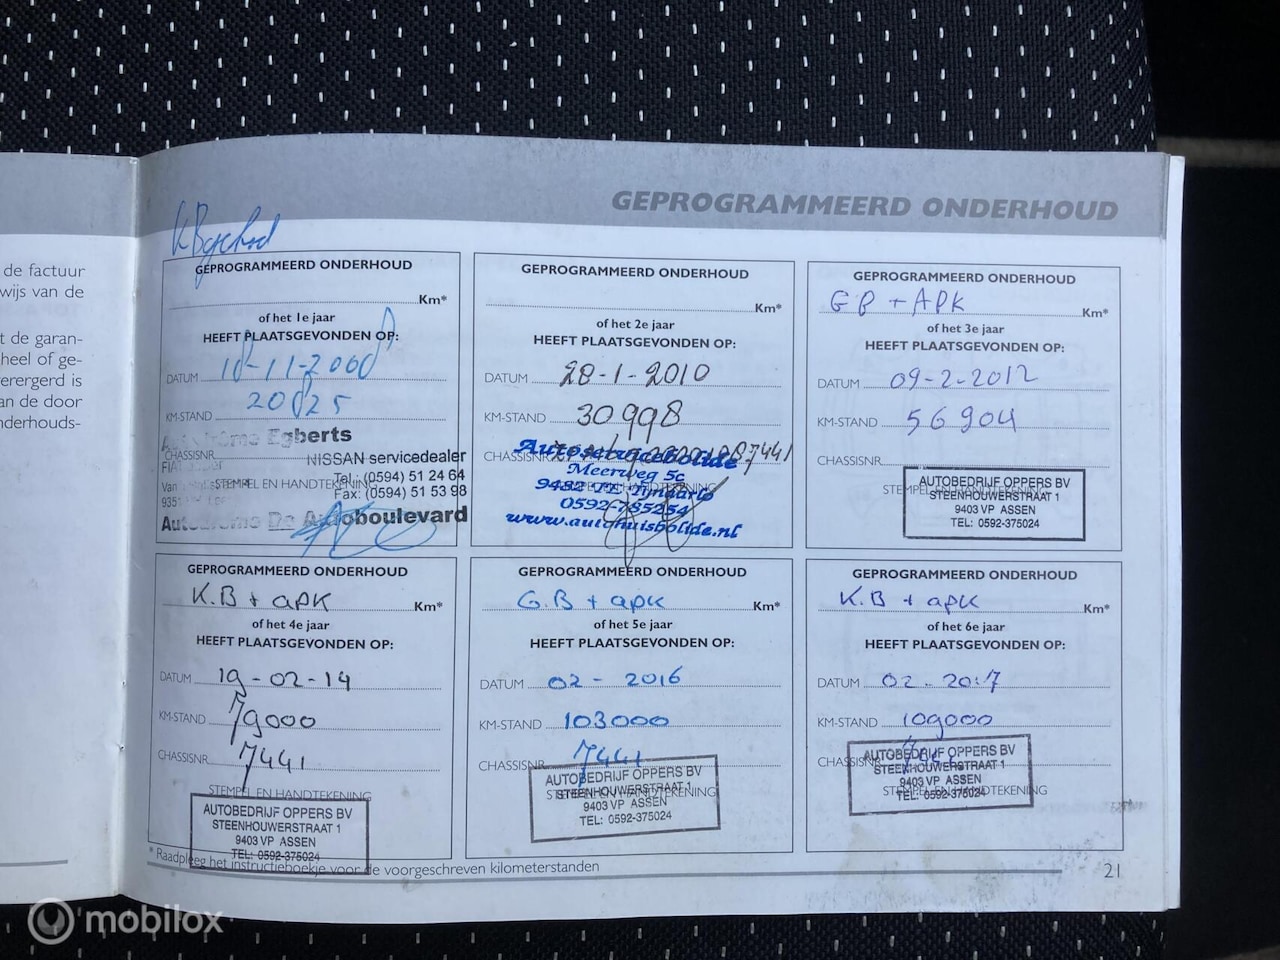 de factuur
wijs van de
t de garan-
heel of ge-
erergerd is
an de door
nderhouds-
GEPROGRAMMEERD ONDERHOUD
GEPROGRAMMEERD ONDERHOUD
Km*
of het 1e jaar
HEEFT PLAATSGEVONDEN OP:
DATUM
KM-STAND 20825
Egberts
CHASSISNR.
NISSAN servicedealer
Tel.: (0594) 51 24 64
STEMPEL EN HANDTEKENING
Fax: (0594) 51 53 98
Autodrome De Autoboulevard
GEPROGRAMMEERD ONDERHOUD
Km*
of het 2e jaar
HEEFT PLAATSGEVONDEN OP:
DATUM 28-1-2010
KM-STAND 30998
CHASSISNR. 7441
Autoservice Bolide
Meerweg 5c
9482 TE Tynaarlo
0592-785254
www.autohuisbolide.nl
GEPROGRAMMEERD ONDERHOUD
GB + APK Km*
of het 3e jaar
HEEFT PLAATSGEVONDEN OP:
DATUM 09-2-2012
KM-STAND 56904
CHASSISNR.
STEMPEL EN HANDTEKENING
AUTOBEDRIJF OPPERS BV
STEENHOUWERSTRAAT 1
9403 VP ASSEN
TEL: 0592-375024
GEPROGRAMMEERD ONDERHOUD
K.B + apk Km*
of het 4e jaar
HEEFT PLAATSGEVONDEN OP:
DATUM 19-02-14
KM-STAND 79000
CHASSISNR. 7441
STEMPEL EN HANDTEKENING
AUTOBEDRIJF OPPERS BV
STEENHOUWERSTRAAT 1
9403 VP ASSEN
TEL: 0592-375024
GEPROGRAMMEERD ONDERHOUD
G.B + apk Km*
of het 5e jaar
HEEFT PLAATSGEVONDEN OP:
DATUM 02 - 2016
KM-STAND 103000
CHASSISNR. 7441
STEMPEL EN HANDTEKENING
AUTOBEDRIJF OPPERS BV
STEENHOUWERSTRAAT 1
9403 VP ASSEN
TEL: 0592-375024
GEPROGRAMMEERD ONDERHOUD
K.B + apk Km*
of het 6e jaar
HEEFT PLAATSGEVONDEN OP:
DATUM 02-2017
KM-STAND 109000
CHASSISNR.
STEMPEL EN HANDTEKENING
AUTOBEDRIJF OPPERS BV
STEENHOUWERSTRAAT 1
9403 VP ASSEN
TEL: 0592-375024
* Raadpleeg het instructieboekje voor de voorgeschreven kilometerstanden
21
mobilox